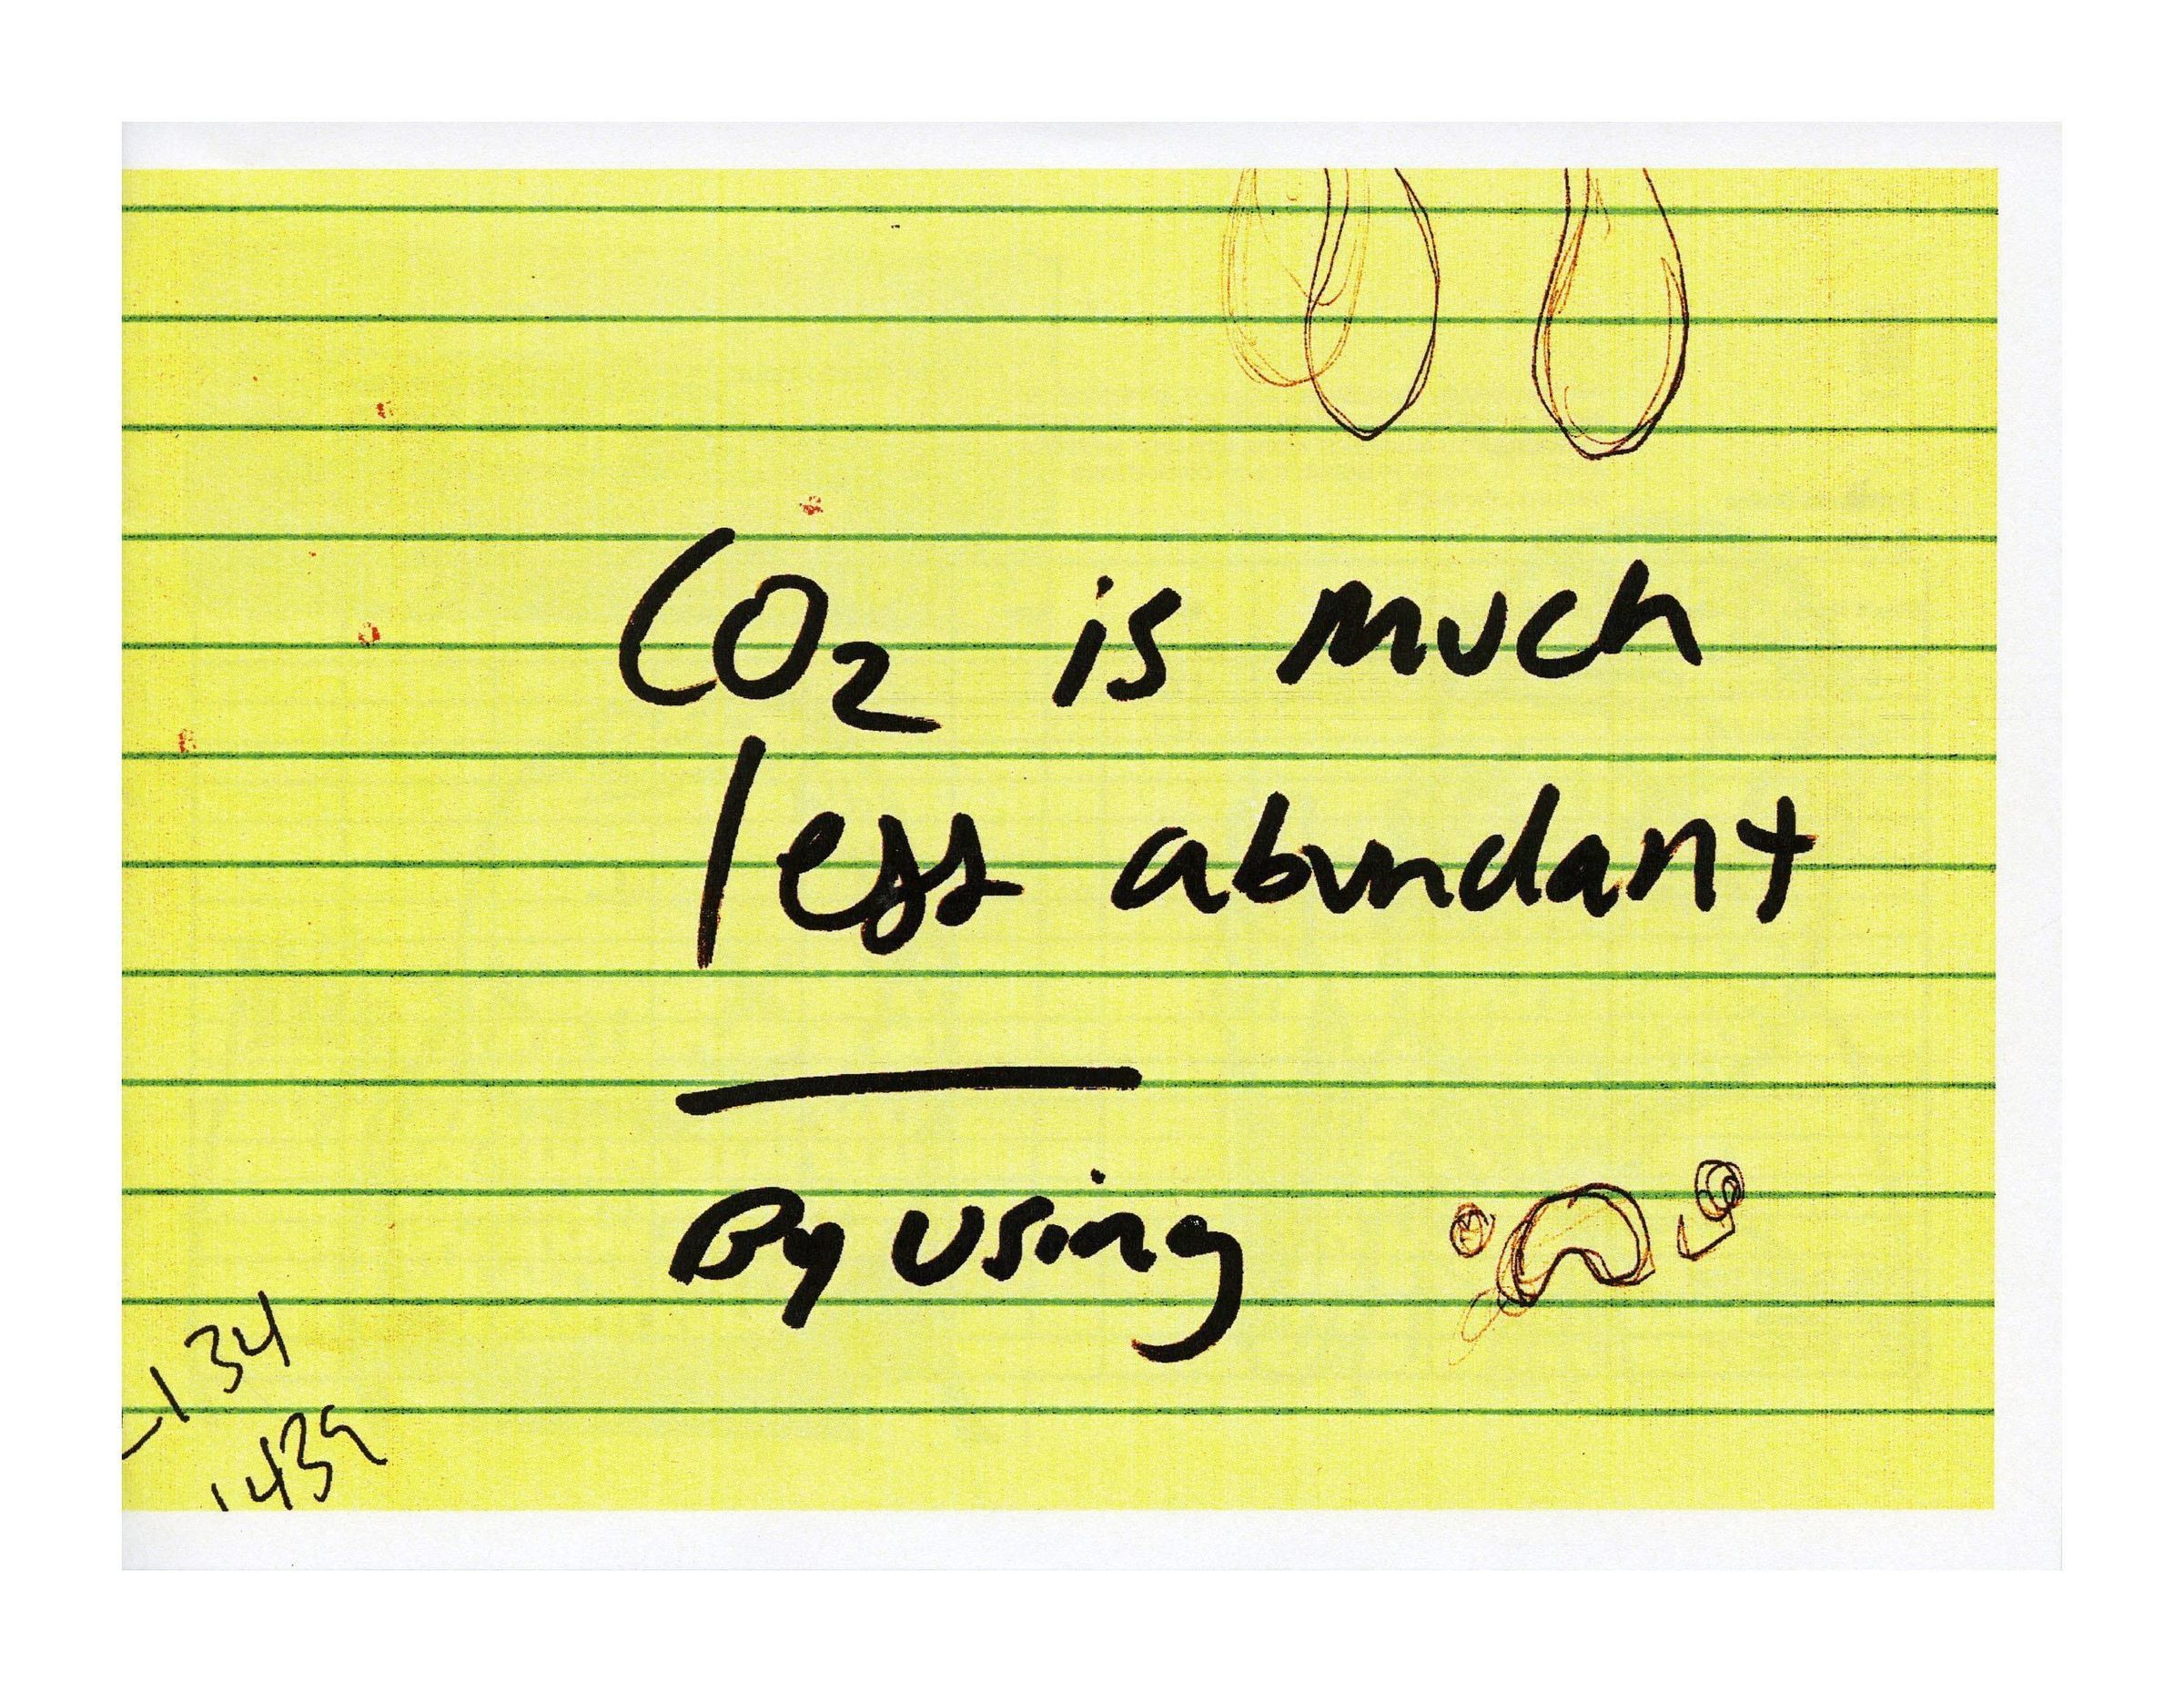 CO₂ is much
less abundant
By using
-134
1439